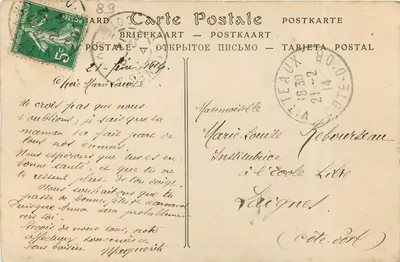 CARD
Carte Postale
POSTKARTE
BRIEFKAART — POSTKAART
POSTALE
ОТКРЫТОЕ ПИСЬМО
TARJETA POSTAL
89
5c
VITTEAUX
18 30
21-2
14
CÔTE-D'OR
21-
Chère Marie Louise
Ne crois pas que nous
t'oublions, je sais que ta
maman t'a fait part de
tous nos ennuis.
Nous espérons que tu es en
bonne santé, et que tu ne
te ressent plus de ton doigt.
Nous souhaitons que tu
passe de bonnes fêtes de carnaval
puisque Anna sera probablement
vers toi.
Reçois de nous tous, nos
affectueux souvenirs
Marguerite
Mademoiselle
Marie Louise Rebourseau
Institutrice
à l'Ecole Libre
Laignes
(Côte d'Or)